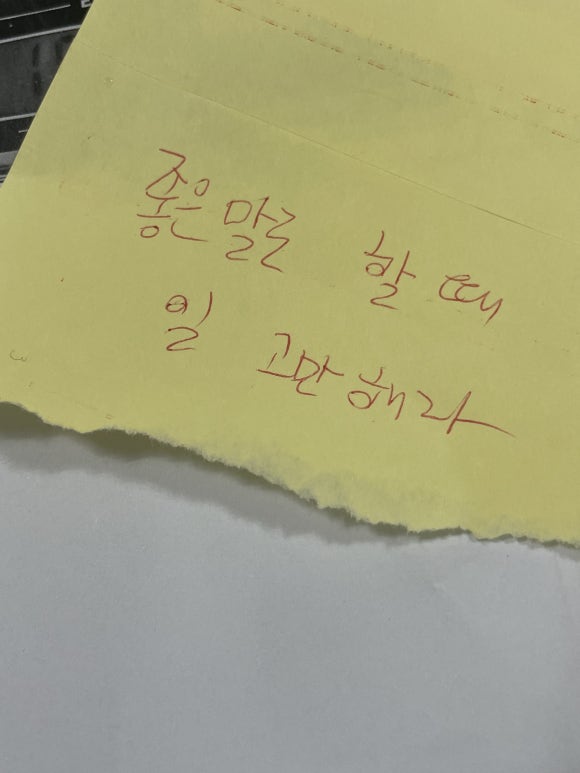 좋은 말로 할 때
일 고만해라